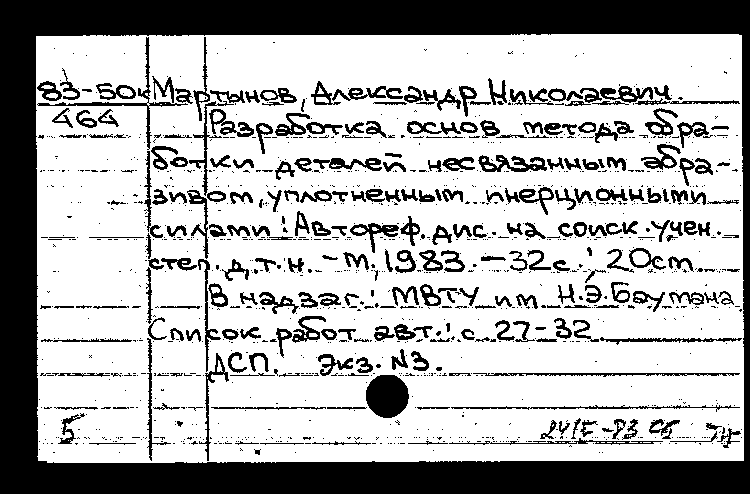 83-50к Мартынов, Александр Николаевич.
464 Разработка основ метода обра-
ботки деталей несвязанным абра-
зивом, уплотненным инерционными
силами : Автореф. дис. на соиск. учен.
степ. д.т.н. - М., 1983. - 32 с. ; 20 см.
В надзаг.: МВТУ им Н.Э.Баумана
Список работ авт.: с 27-32
ДСП. Экз. №3.
5